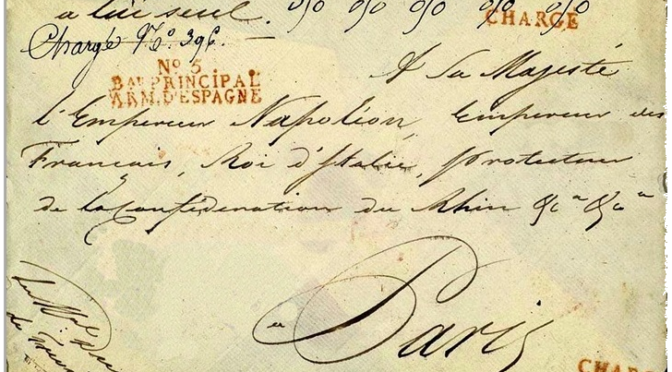 a lui seul. % % % % %
CHARGÉ
Chargé No. 396.
No 5
BAU PRINCIPAL
ARM. D'ESPAGNE
A Sa Majesté
l'Empereur Napoléon, Empereur des
Français, Roi d'Italie, Protecteur
de la Confédération du Rhin &c a &c a
a
Paris
CHARGÉ